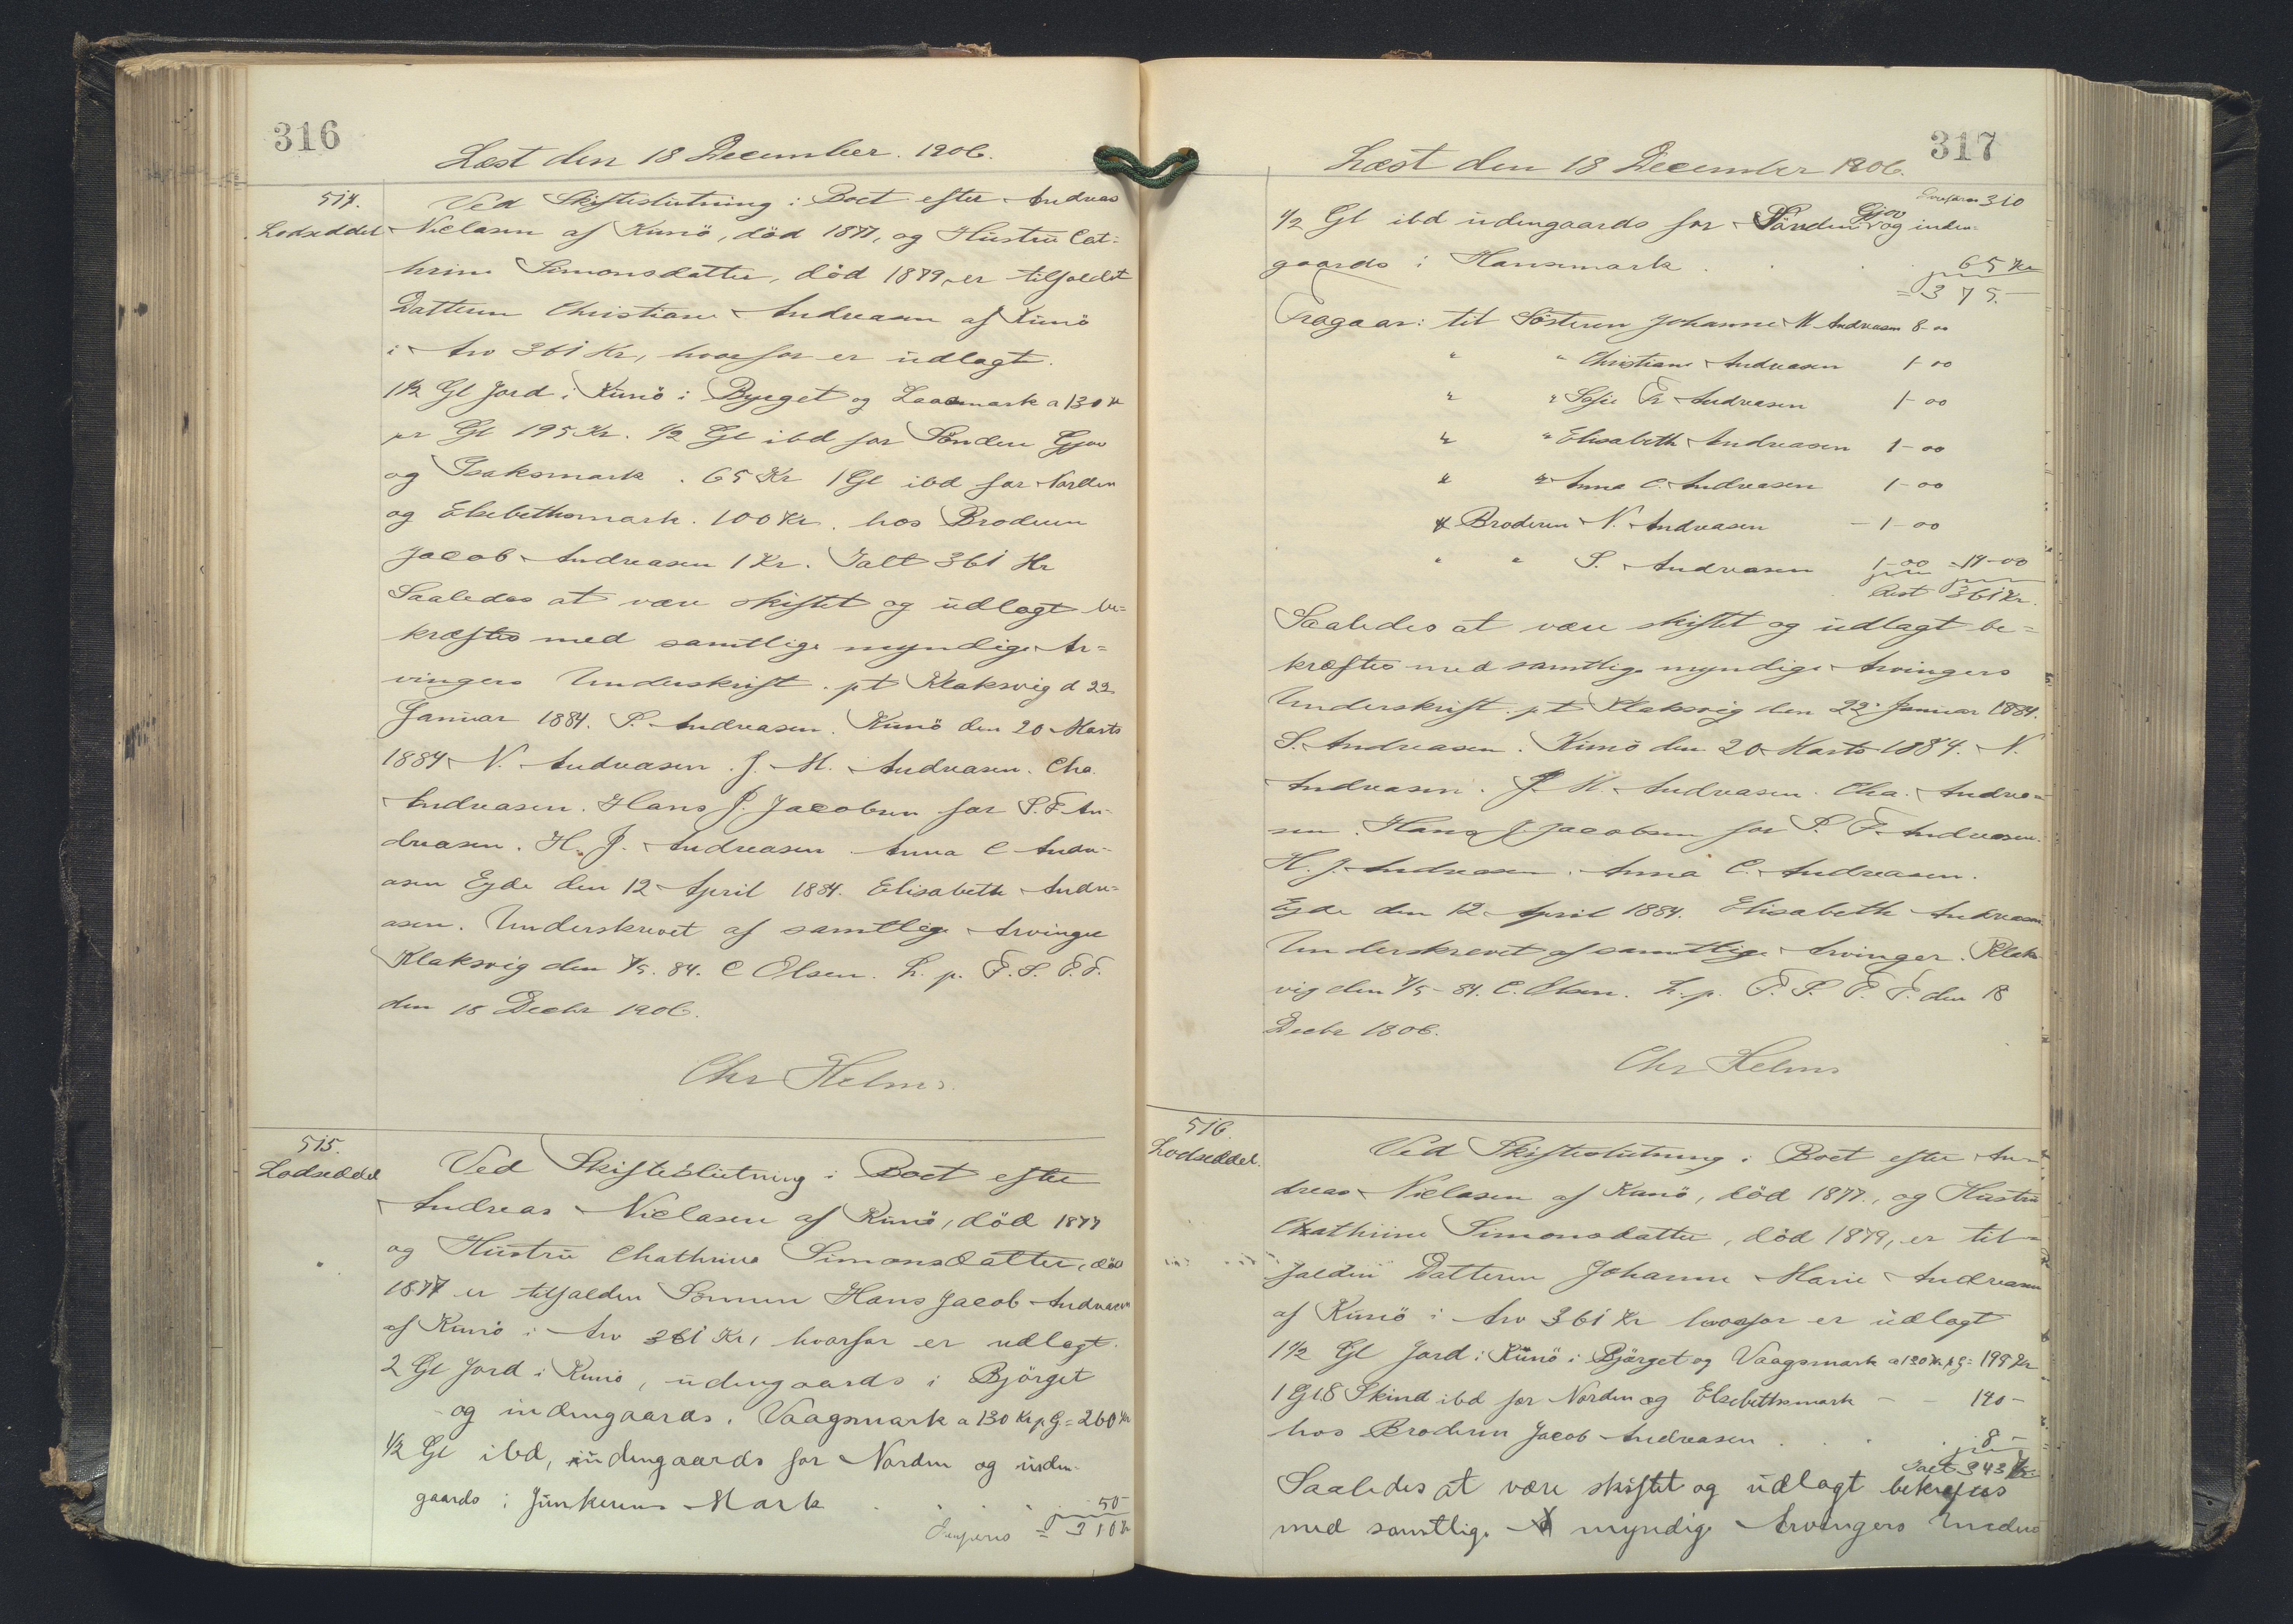 316
Læst den 18 December. 1906.
514.
Lodseddel
Ved Skifteslutning i Boet efter Andreas
Nielasen af Kunö, död 1877, og Hustru Cat-
hrine Simonsdatter, död 1879, er tilfaldet
Datteren Christiane Andreasen af Kunö
i Arv 361 Kr, hvorfor er udlagt.
1 1/2 Gl Jord i Kunö i Byrget og Laasmark a 130 Kr
pr Gl 195 Kr. 1/2 Gl ibd for Sönden Gjov
og Isaksmark. 65 Kr 1 Gl ibd for Norden
og Elsebethsmark. 100 Kr. hos Broderen
Jacob Andreasen 1 Kr. Ialt 361 Kr
Saaledes at være skiftet og udlagt be=
kræftes med samtlige myndige Ar=
vingers Underskrift. pt Klaksvig d 22
Januar 1884. S. Andreasen. Kunö den 20 Marts
1884 N. Andreasen. J. M. Andreasen. Cha.
Andreasen. Hans J. Jacobsen for S. F. An-
dreasen. H. J. Andreasen Anna C Andre-
asen Ejde den 12 April 1884. Elisabeth Andre=
asen. Underskrevet af samtlige Arvinger
Klaksvig den 1/5. 84. C Olsen. L. p. F. S. T. F.
den 18 Decbr 1906.
Chr Helms.
515.
Lodseddel
Ved Skifteslutning i Boet efter
Andreas Nielasen af Kunö, död 1877
og Hustru Chathrine Simonsdatter, död
1877 er tilfalden Sönnen Hans Jacob Andreasen
af Kunö i Arv 361 Kr, hvorfor er udlagt.
2 Gl Jord i Kunö, udengaards i Björget
og indengaards i Vaagsmark a 130 Kr p G = 260 Kr
1/2 Gl ibd, udengaards for Norden og inden-
gaards i Junkerens Mark . . . 50-
= 310 Kr
317
Læst den 18 December 1906.
310
1/2 Gl ibd udengaards for Sönden Gjov og inden-
gaards i Hansmark . . . 65 Kr
= 375.-
Fragaar: til Söstren Johanne M Andreasen 8-00
" " Christiane Andreasen 1-00
" " Sofie Fr Andreasen 1-00
" " Elisabeth Andreasen 1-00
" " Anna C. Andreasen 1-00
" Broderen N. Andreasen - 1-00
" " S. Andreasen 1-00 = 14-00
Rest 361 Kr.
Saaledes at være skiftet og udlagt be=
kræftes med samtlige myndige Arvingers
Underskrift. pt Klaksvig den 22 Januar 1884.
S. Andreasen. Kunö den 20 Marts 1884. N.
Andreasen. J. M. Andreasen. Cha. Andrea=
sen. Hans J Jacobsen for S. F. Andreasen.
H. J. Andreasen. Anna C. Andreasen.
Ejde den 12 April 1884. Elisabeth Andreasen
Underskrevet af samtlige Arvinger. Klaks
vig den 1/5-84. C. Olsen. L. p. F. S. T. F. den 18
Decbr 1906.
Chr Helms
516.
Lodseddel.
Ved Skifteslutning i Boet efter An-
dreas Nielasen af Kunö, död 1877., og Hustru
Chathrine Simonsdatter, död 1879, er til-
falden Datteren Johanne Marie Andreasen
af Kunö i Arv 361 Kr hvorfor er udlagt
1 1/2 Gl Jord i Kunö i Bjärget og Vaagsmark a 130 Kr. p G = 195 Kr
1 G 8 Skind ibd for Norden og Elsebethsmark - - 140-
hos Broderen Jacob Andreasen . . . 8-
Ialt 343 Kr
Saaledes at være skiftet og udlagt bekræftes
med samtlige myndige Arvingers Under